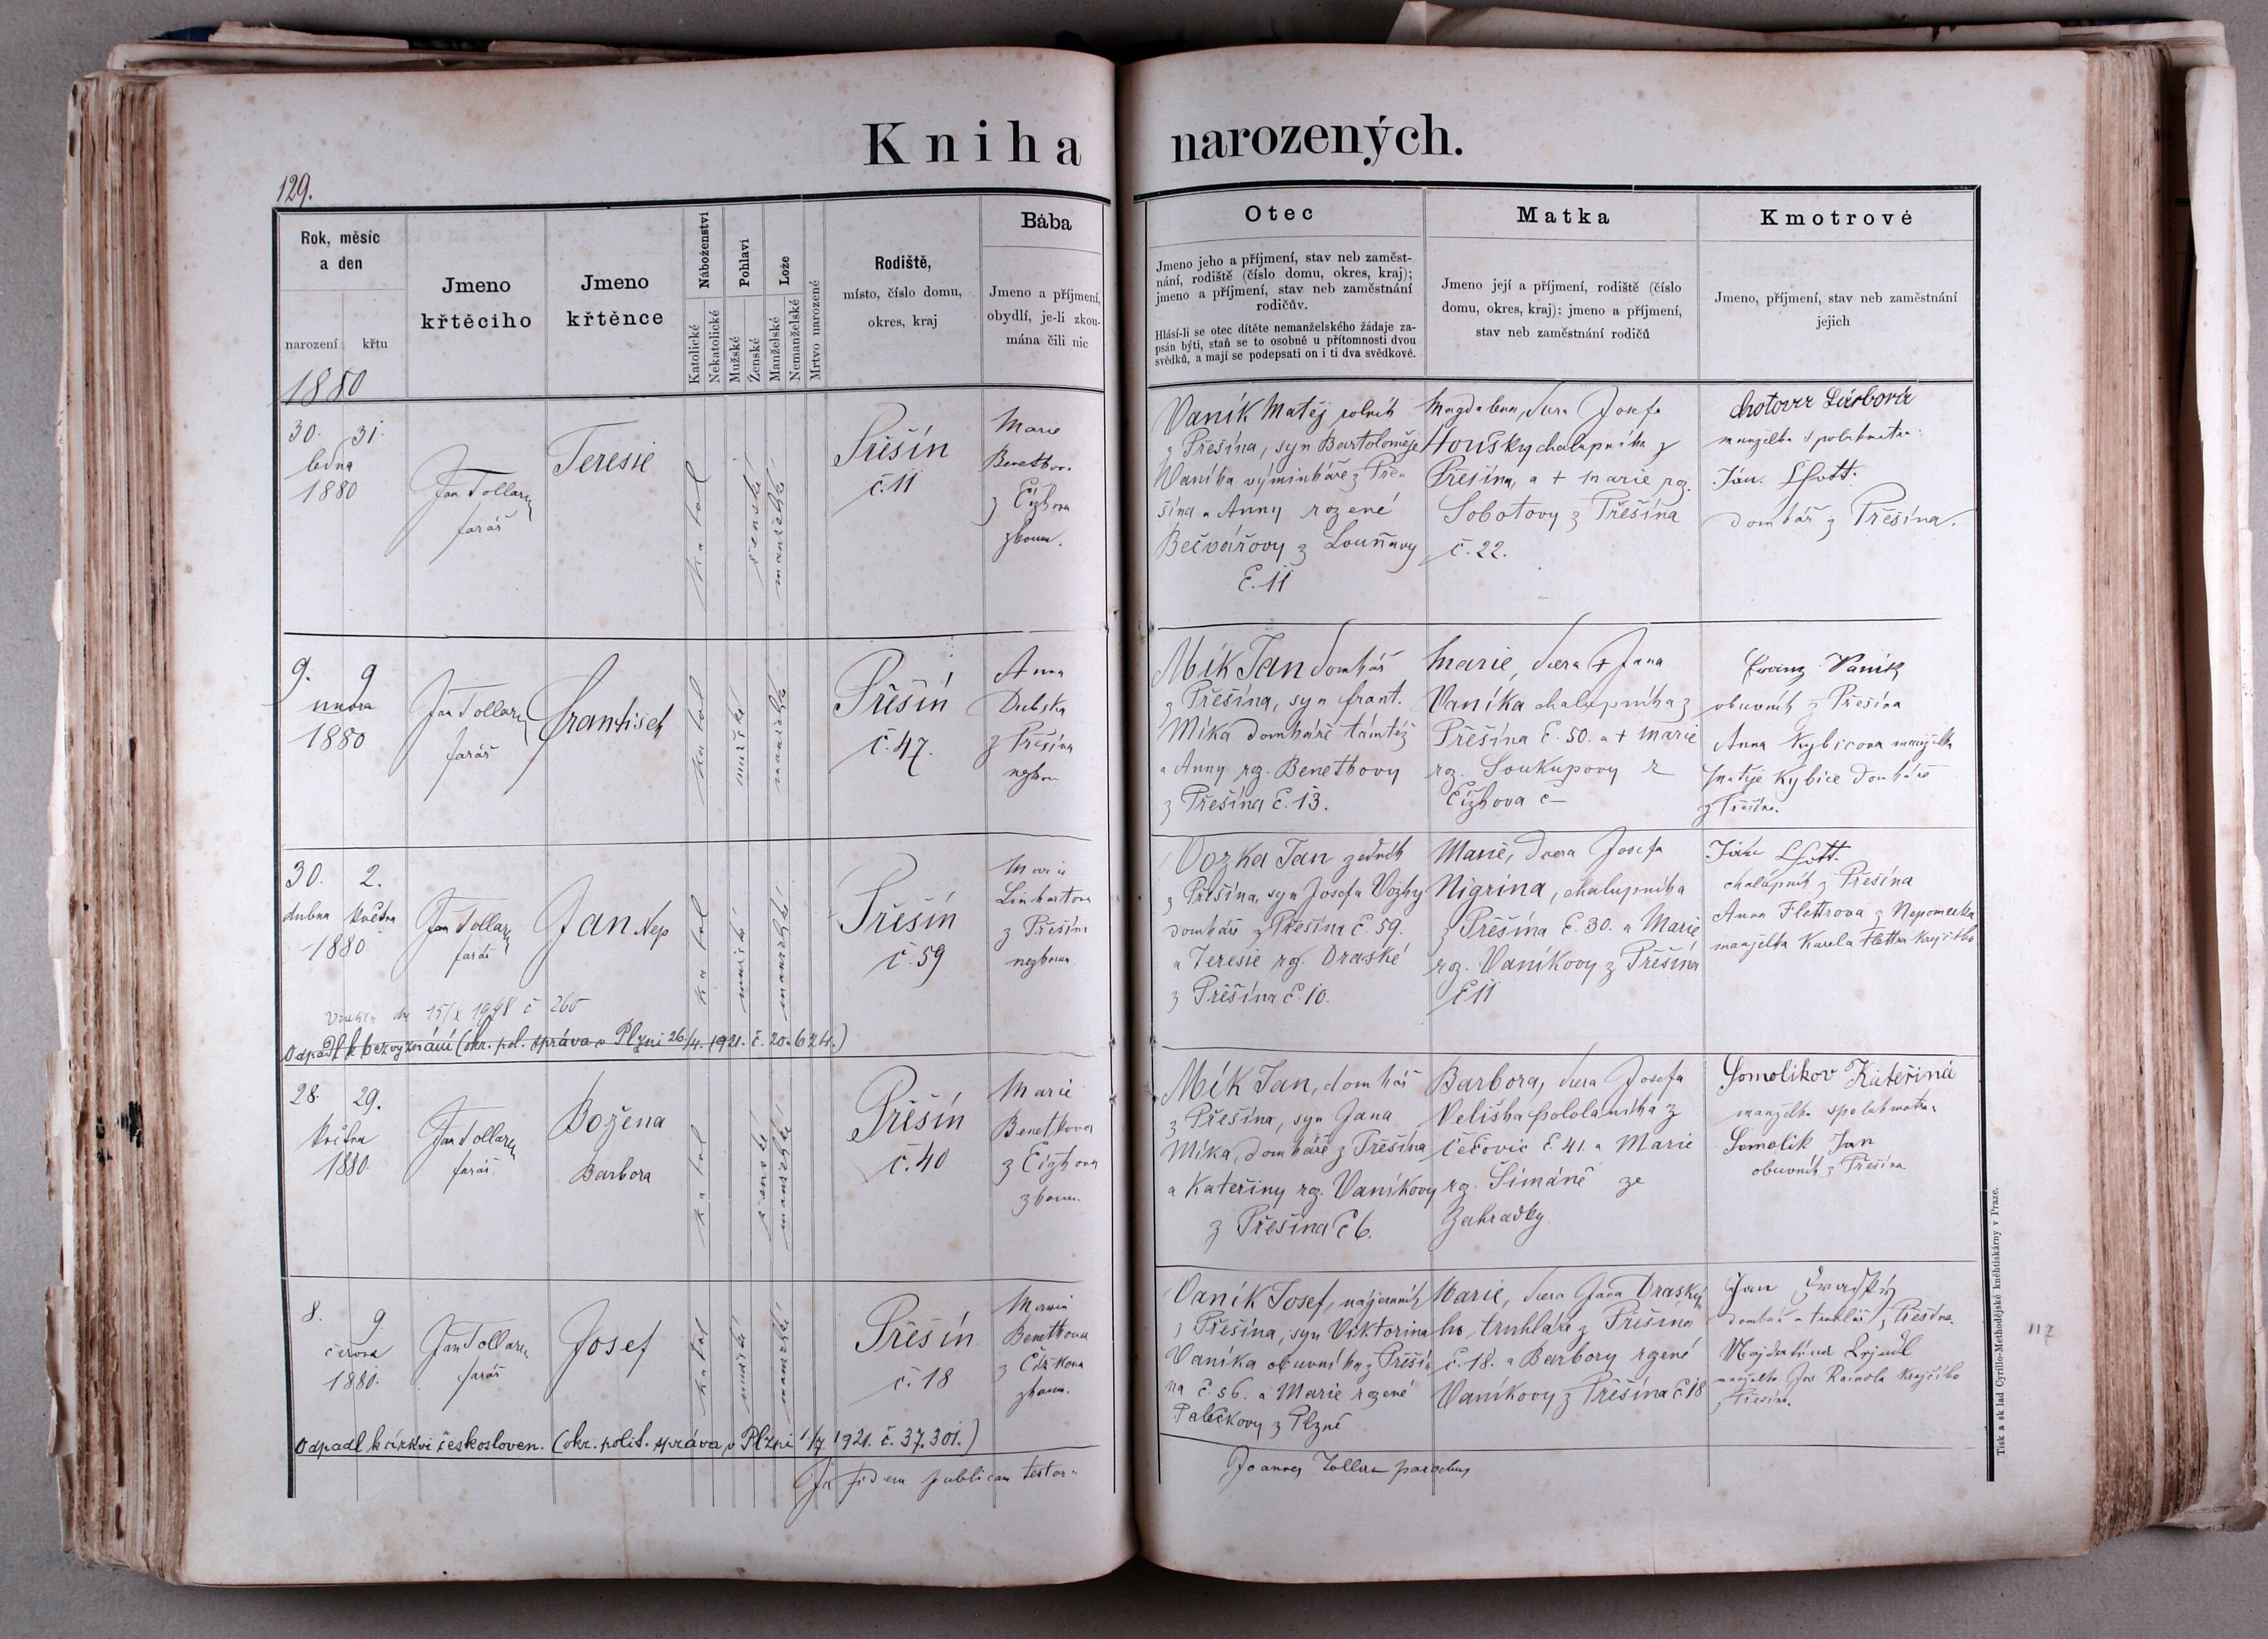 Kniha narozených.
129.
Rok, měsíc
a den
narození křtu
1880
Jmeno
křtěcího
Jmeno
křtěnce
Náboženství
Katolické
Nekatolické
Pohlaví
Mužské
Ženské
Lože
Manželské
Nemanželské
Mrtvo narozené
Rodiště,
místo, číslo domu,
okres, kraj
Bába
Jmeno a příjmení,
obydlí, je-li zkou-
mána čili nic
Otec
Jmeno jeho a příjmení, stav neb zaměst-
nání, rodiště (číslo domu, okres, kraj);
jmeno a příjmení, stav neb zaměstnání
rodičův.
Hlásí-li se otec dítěte nemanželského žádaje za-
psán býti, staň se to osobně u přítomnosti dvou
svědků, a mají se podepsati on i ti dva svědkové.
Matka
Jmeno její a příjmení, rodiště (číslo
domu, okres, kraj): jmeno a příjmení,
stav neb zaměstnání rodičů
Kmotrové
Jmeno, příjmení, stav neb zaměstnání
jejich
30. 31.
ledna
1880
Jan Tollar
farář
Teresie
katol
ženské
manželské
Přešín
č. 11
Marie
z Čížkova
zkoum.
Vaník Matěj, rolník
z Přešína, syn Bartoloměje
Vaníka výminkáře z Pře-
šína a Anny rozené
Bečvářovy z Louňavy
č. 11
Magdalena, dcera Josefa
Houšky chalupníka z
Přešína, a + Marie rz.
Sobotovy z Přešína
č. 22.
manželka spolukmotra
Ján
domkář z Přešína.
9. 9
února
1880
Jan Tollar
farář
František
katol
mužské
manželské
Přešín
č. 47.
Anna
Dubska
z Přešína
nezkou
Mík Jan domkář
z Přešína, syn Frant.
Míka domkáře tamtéž
a Anny rz. Benetkovy
z Přešína č. 13.
Marie, dcera + Jana
Vaníka chalupníka z
Přešína č. 50. a + Marie
rz. Soukupovy z
Čížkova č –
Franz Vaník
obuvník z Přešína
Anna Kybicova manželka
Matěje Kybice domkáře
z Přešína.
30. 2.
dubna května
1880
Jan Tollar
farář
Jan Nep
katol
mužské
manželské
Přešín
č. 59
Marie
Linhartova
z Přešína
nezkoum.
Vozka Jan zedník
z Přešína, syn Josefa Vozky
domkáře z Přešína č. 59.
a Teresie rz. Draské
z Přešína č. 10.
Marie, dcera Josefa
Nigrina, chalupníka
z Přešína č. 30. a Marie
rz. Vaníkovy z Přešína
č 11
chalupník z Přešína
Anna Flettrova z Nepomuka
manželka Karla Flettra krejčího
1948 č 260
Odpadl k bezvyznání (okr. pol. správa v Plzni 26./4. 1921. č. 20.624.)
28. 29.
května
1880.
Jan Tollar
farář
Božena
Barbora
katol
ženské
manželské
Přešín
č. 40
Marie
Benetkova
z Čížkova
zkoum.
Mík Jan, domkář
z Přešína, syn Jana
Míka, domkáře z Přešína
a Kateřiny rz. Vaníkovy
z Přešína č 6.
Barbora, dcera Josefa
Velíška pololaníka z
Čečovic č. 41. a Marie
rz. Šimáně ze
Zahradky.
Somolíkov Kateřina
manželka spolukmotra
Somolík Jan
obuvník z Přešína
8. 9.
června
1880.
Jan Tollar
farář
Josef
katol
mužské
manželské
Přešín
č. 18
Marie
Benetkova
z Čížkova
zkoum.
Vaník Josef, nájemník
z Přešína, syn Viktorina
Vaníka obuvníka z Přeší-
na č. 56. a Marie rozené
Palečkovy z Plzně
Marie, dcera Jana Draské-
ho, truhláře z Přešína
č. 18. a Barbory rzené
Vaníkovy z Přešína č. 18
Jan Draský
domkář a truhlář z Přešína.
z Přešína.
Odpadl k církvi českosloven. (okr. polit. správa v Plzni 1./7. 1921. č. 37.301.)
In fidem publicam testor
Joannes Tollar parochus
117
Tisk a sklad Cyrillo-Methodějské knihtiskárny v Praze.